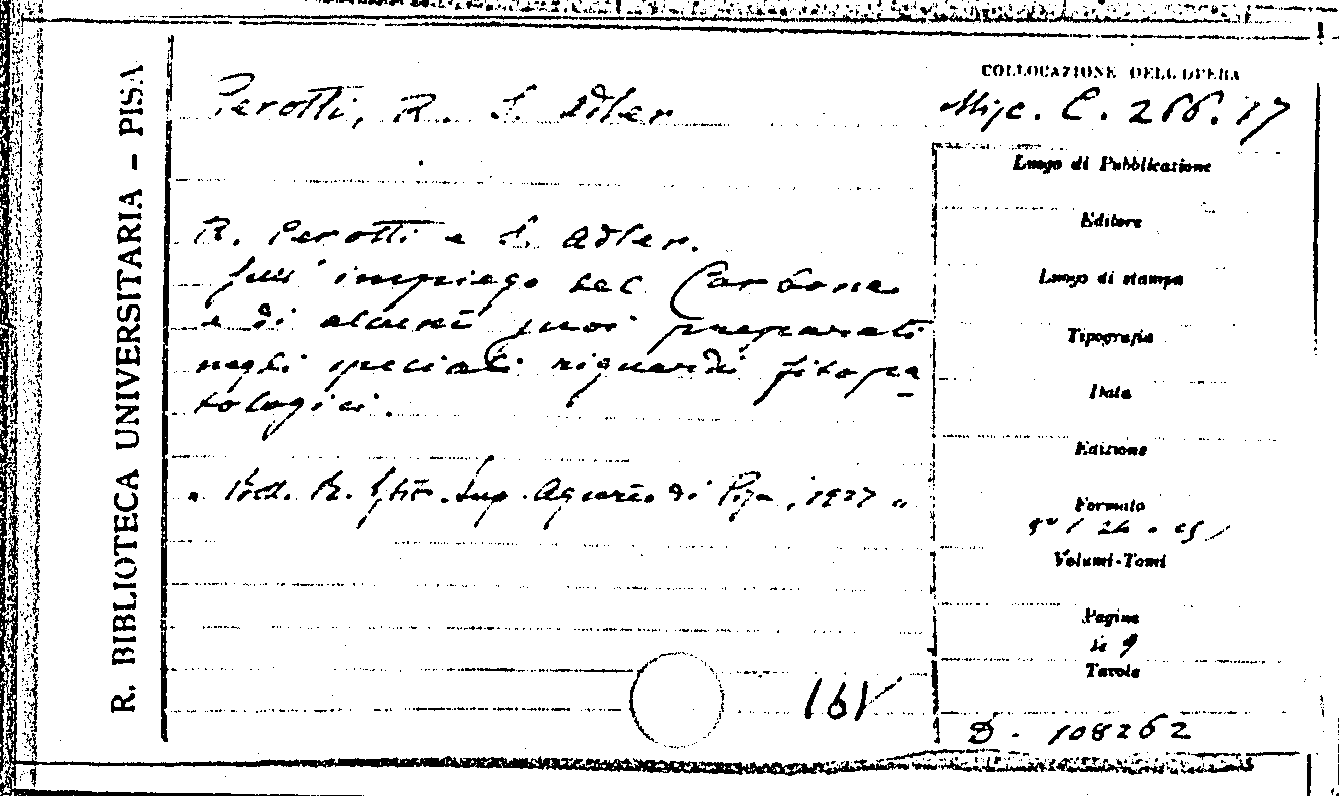 R. BIBLIOTECA UNIVERSITARIA - PISA
Perotti, R. S. Adler
COLLOCAZIONE DELL'OPERA
Misc. C. 266. 17
R. Perotti e S. Adler.
Sull'impiego del Carbone
e di alcuni suoi preparati
negli speciali riguardi fitopa
tologici.
" Boll. R. Istit. Sup. Agrario di Pisa, 1927 "
Luogo di Pubblicazione
Editore
Luogo di stampa
Tipografia
Data
Edizione
Formato
8°
Volumi-Tomi
Pagine
9
Tavole
D. 108262